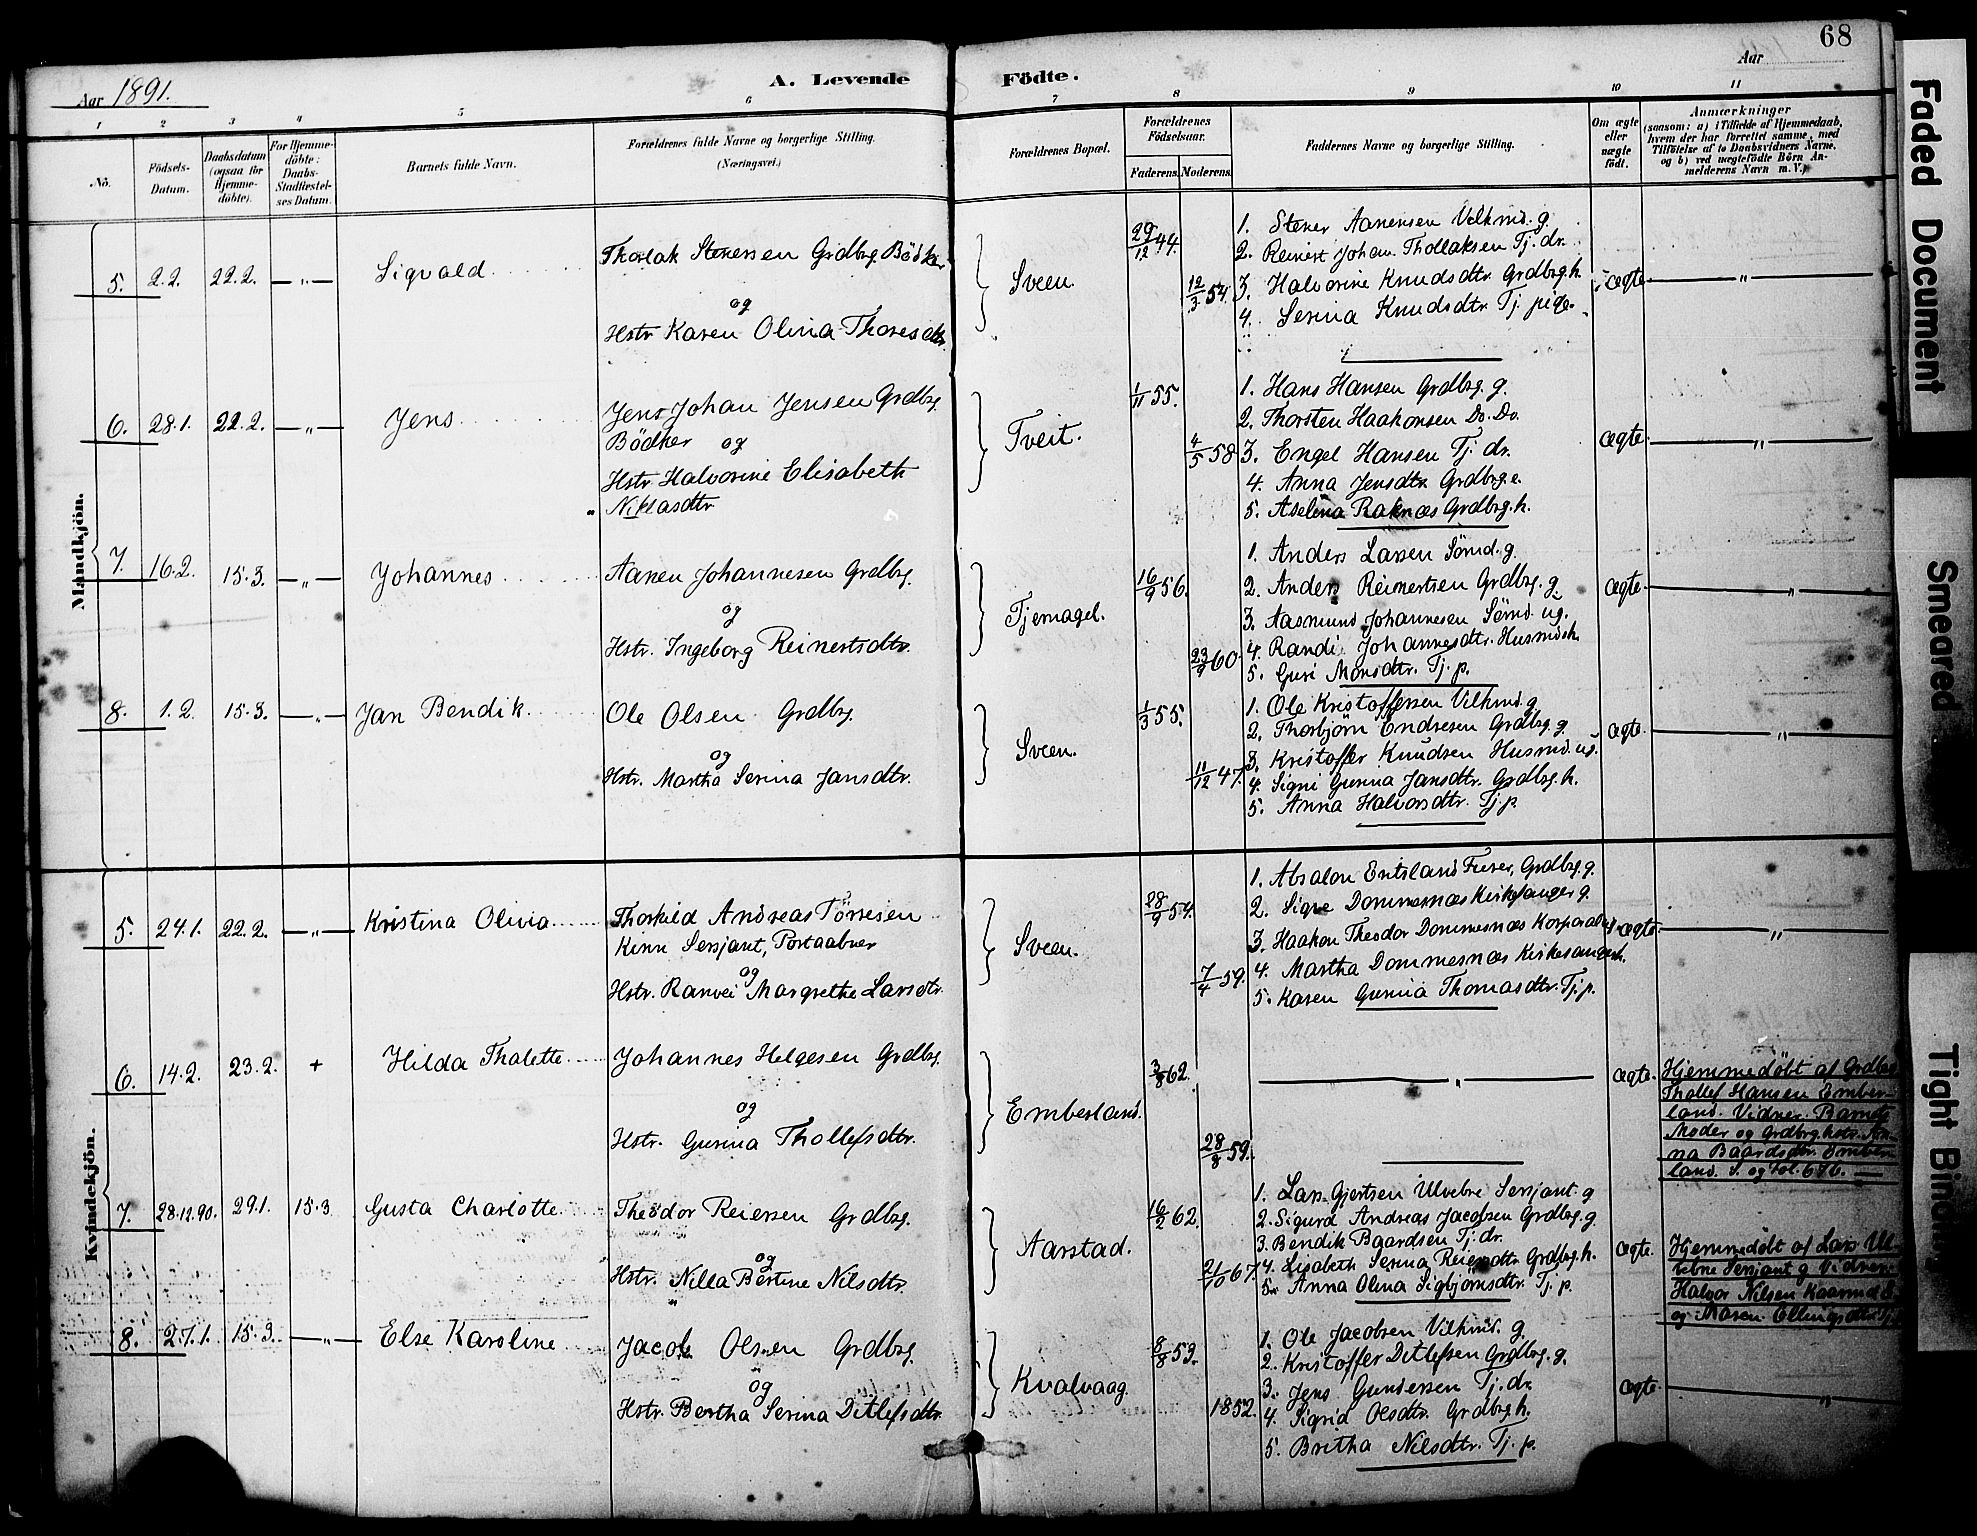 68
Aar 1891.
A. Levende Födte.
Aar
1 2 3 4 5 6 7 8 9 10 11
No.
Födsels-Datum.
Daabsdatum (ogsaa for Hjemme-döbte).
For Hjemme-döbte: Daabs-Stadfæstel-ses Datum.
Barnets fulde Navn.
Forældrenes fulde Navne og borgerlige Stilling.
(Næringsvei.)
Forældrenes Bopæl.
Forældrenes Födselsaar.
Faderens. Moderens.
Faddernes Navne og borgerlige Stilling.
Om ægte eller uægte födt.
Anmærkninger
(saasom: a) i Tilfælde af Hjemmedaab,
hvem der har forrettet samme, med
Tilföielse af to Daabsvidners Navne,
og b) ved uægtefödte Börn An-
melderens Navn m. V.)
Mandkjön.
5. 2.2. 22.2. —"— Sigvald
Thorlak Stenersen Grdbrg. Bödker
og
Hstr. Karen Olina Thoresdtr.
Sveen.
29/12 44.
12/3 54.
1. Stener Aanensen Velkmd. g.
2. Reinert Johan Thollaksen Tj. dr.
3. Halvorine Knudsdtr. Grdbrg. h.
4. Serina Knudsdtr. Tj. pige.
ægte — " —
6. 28.1. 22.2. —"— Jens
Jens Johan Jensen Grdbrg.
Bödker og
Hstr. Halvorine Elisabeth
Niklasdtr.
Tveit.
1/11 55.
4/5 58
1. Hans Hansen Grdbrg. g.
2. Thorsten Haakonsen Do. Do.
3. Engel Hansen Tj. dr.
4. Anna Jensdtr. Grdbrg. e.
5. Aselina Raknæs Grdbrg. h.
ægte. — " —
7. 16.2. 15.3. —"— Johannes
Aanen Johannesen Grdbrg.
og
Hstr. Ingeborg Reinertsdtr.
Tjernagel.
16/9 56.
23/9 60.
1. Anders Larsen Sömd. g.
2. Anders Reinertsen Grdbrg. g.
3. Aasmund Johannesen Sömd. ug.
4. Randi Johannesdtr. Husmdsk.
5. Guri Monsdtr. Tj. p.
ægte. — " —
8. 1.2. 15.3. —"— Jan Bendik
Ole Olsen Grdbrg.
og
Hstr. Martha Serina Jansdtr.
Sveen.
1/3 55.
11/12 47.
1. Ole Kristoffersen Vilkmd. g
2. Thorbjörn Endresen Grdbrg. g.
3. Kristoffer Knudsen Husmd. ug.
4. Signi Gurina Jansdtr. Grdbrg. h.
5. Anna Halvorsdtr. Tj. p.
ægte. — " —
Kvindekjön.
5. 24.1. 22.2. —"— Kristina Olivia
Thorkild Andreas Törresen
Kinn Sersjant, Postaabner
og
Hstr. Ranvei Margrethe Larsdtr.
Sveen.
28/9 54.
7/4 59.
1. Absalon Eritsland Furer, Grdbrg. g.
2. Signe Dommersnæs Kirkesanger g.
3. Haakon Theodor Dommesnæs Korporal
4. Martha Dommesnæs Kirkesangerh.
5. Karen Gurina Thomasdtr. Tj. p.
ægte. — " —
6. 14.2. 23.2. + Hilda Thalette
Johannes Helgesen Grdbrg
og
Hstr. Gurina Thollefsdtr.
Emberland.
3/8 62.
28/8 59.
— " —
ægte.
Hjemmedöbt af Grdbrg
Thollef Hansen Ember-
land. Vidner. Barnets
Moder og Grdbrg. hstr. An-
na Baardsdtr. Ember-
land. S. og Fol. 67 b. —
7. 28.12.90. 29.1. 15.3 Gusta Charlotte
Theodor Reiersen Grdbrg.
og
Hstr. Nilla Bertine Nilsdtr.
Aarstad.
16/2 62.
21/10 67.
1. Lars Gjertsen Ulvebne Sersjant. g
2. Sigurd Andreas Jacobsen Grdbrg. g
3. Bendik Baardsen Tj. dr.
4. Lisabeth Serina Reiersdtr. Grdbrg. h.
5. Anna Olina Sigbjörnsdtr. Tj. p.
ægte.
Hjemmedöbt af Lars Ul-
vebne Sersjant g Vidner
Halvor Nilsen
og Maren Ellingsdtr.
8. 27.1. 15.3. —"— Else Karoline
Jacob Olsen Grdbrg.
og
Hstr. Bertha Serina Ditlefsdtr.
Kvalvaag.
8/8 53.
1852.
1. Ole Jacobsen Vilkmd. g.
2. Kristoffer Ditlefsen Grdbrg. g.
3. Jens Gundersen Tj. dr.
4. Sigrid Olsdtr. Grdbrg. h.
5. Britha Nilsdtr. Tj. p.
ægte. — " —
Faded Document
Smeared
Tight Binding